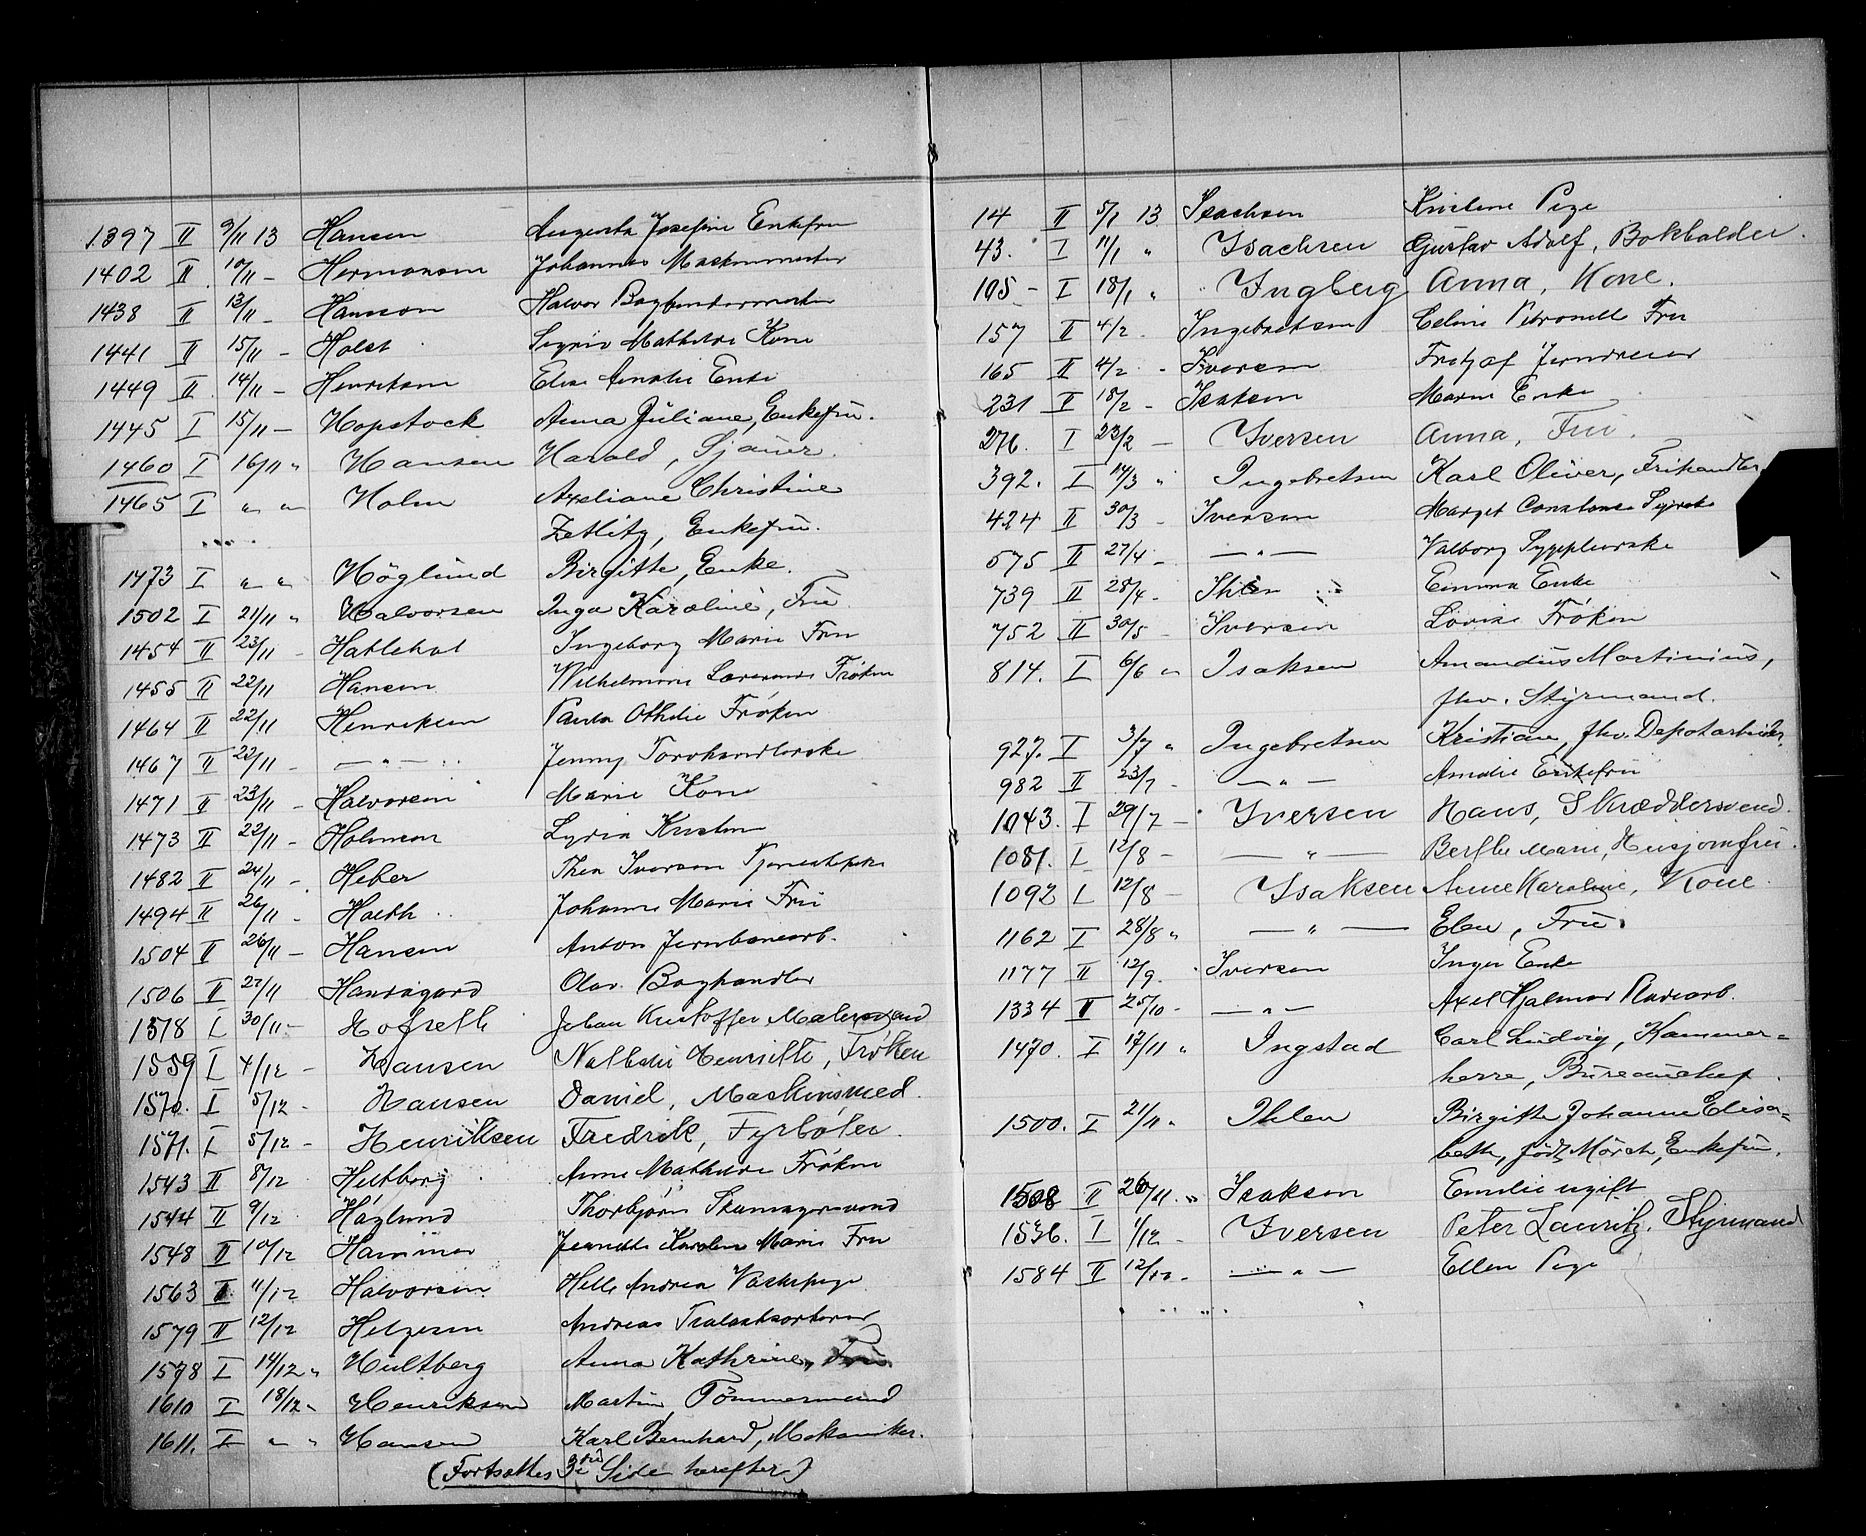 1397 II 9/11 13 Hansen Augusta Josefine Enkefru
1402 II 10/11 - Hermansen Johannes Maskinmester
1438 II 13/11 - Hanson Halvor Bogbindermester
1441 II 15/11 - Holst Sigrid Mathilde Kone
1449 II 14/11 - Henriksen Elise Amalie Enke
1445 I 15/11 - Hopstock Anna Juliane, Enkefru.
1460 I 16/11 " Hansen Harald, Sjauer.
1465 I " " Holm Axeliane Christine
Zetlitz, Enkefru.
1473 I " " Höglund Birgitte, Enke.
1502 I 21/11 " Halvorsen Inga Karoline, Fru
1454 II 23/11 - Hatlehol Ingeborg Marie Fru
1455 II 22/11 Hansen Wilhelmine Frøken
1464 II 22/11 Henriksen Paula Othilie Frøken
1467 II 22/11 - — " — Jenny Torvhandlerske
1471 II 23/11 - Halvorsen Marie Kone
1473 II 22/11 - Holmsen Lydia
1482 II 24/11 - Heber Thea Iverson
1494 II 26/11 - Holth Johanne Marie Fru
1504 II 26/11 - Hansen Anton Jernbanearb.
1506 II 27/11 Handsgard Olav Boghandler
1518 I 30/11 - Hofseth Johan Kristoffer Malersvend
1559 I 4/12 - Hansen Nathalie Henriette, Frøken
1570. I 5/12 - Hansen Daniel, Maskinsmed.
1571. I 5/12 - Henriksen Fredrik, Fyrbøter.
1543 II 8/12 Heltborg Anne Mathilde Frøken
1544 II 9/12 Høglund Thorbjørn Skomagersvend
1548 II 10/12 Hammer Karoline Marie Fru
1563 II 11/12 Halvorsen Helle Andrea Vaskepige
1579 II 12/12 Helgesen Andreas
1578 I 14/12 " Hultberg Anna Kathrine, Fru.
1610 I 18/12 " Henriksen Martin Tømmermand
1611. I " " Hansen Karl Bernhard, Mekaniker.
(Fortsættes 3die Side herefter)
14 II 5/1 13 Isachsen Kristine Pige
43. I 11/1 " Isachsen Gustav Adolf, Bokholder.
105 - I 18/1 " Ingberg Anna, Kone.
157 II 4/2 - Ingebretsen Celine Petronelle Fru
165 II 4/2 - Iversen Fritzof Jerndreier
231 II 18/2 - Isaksen Marie Enke
276. I 23/2 - Iversen Anna, Fru.
392. I 14/3 " Ingebretsen Karl Oliver, Frihandler
424 II 30/3 - Iversen Margit Constanse
575 II 27/4 - — " — Valborg Sygepleierske
739 II 28/4 - Ihlen Emma Enke
752 II 30/5 - Iversen Lovise Frøken
814. I 6/6 " Isaksen Amandus Martinius,
fhv. Styrmand.
927. I 3/7 " Ingebretsen Kristian, fhv. Depotarbeider,
982 II 23/7 - — " — Amalie Enkefru
1043. I 29/7 - Iversen Hans, Skræddersvend.
1081. I 12/8 - — " — Berthe Marie, Husjomfru.
1092 I 12/8 - Isaksen Anne Karoline, Kone.
1162 I 28/8 " — " — Elen, Fru.
1177 II 12/9. Iversen Inger Enke
1334 II 25/10 - — " — Axel Hjalmar
1470. I 17/11 " Ingstad Carl Ludvig, Kammer-
herre, Bureauchef.
1500. I 21/11 " Ihlen Birgitte Johanne Elisa-
beth, født Mörch, Enkefru.
1508 II 26/11. " Isaksen Emilie ugift
1536. I 1/12 - Iversen Peter Lauritz, Styrmand
1584 II 12/12 - — " — Ellen Pige